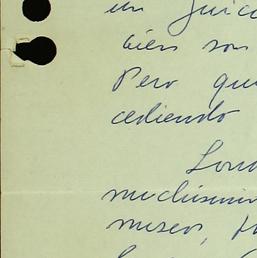 un juic
bien son
Pero qu
cediendo
Lond
muchísim
museos, p